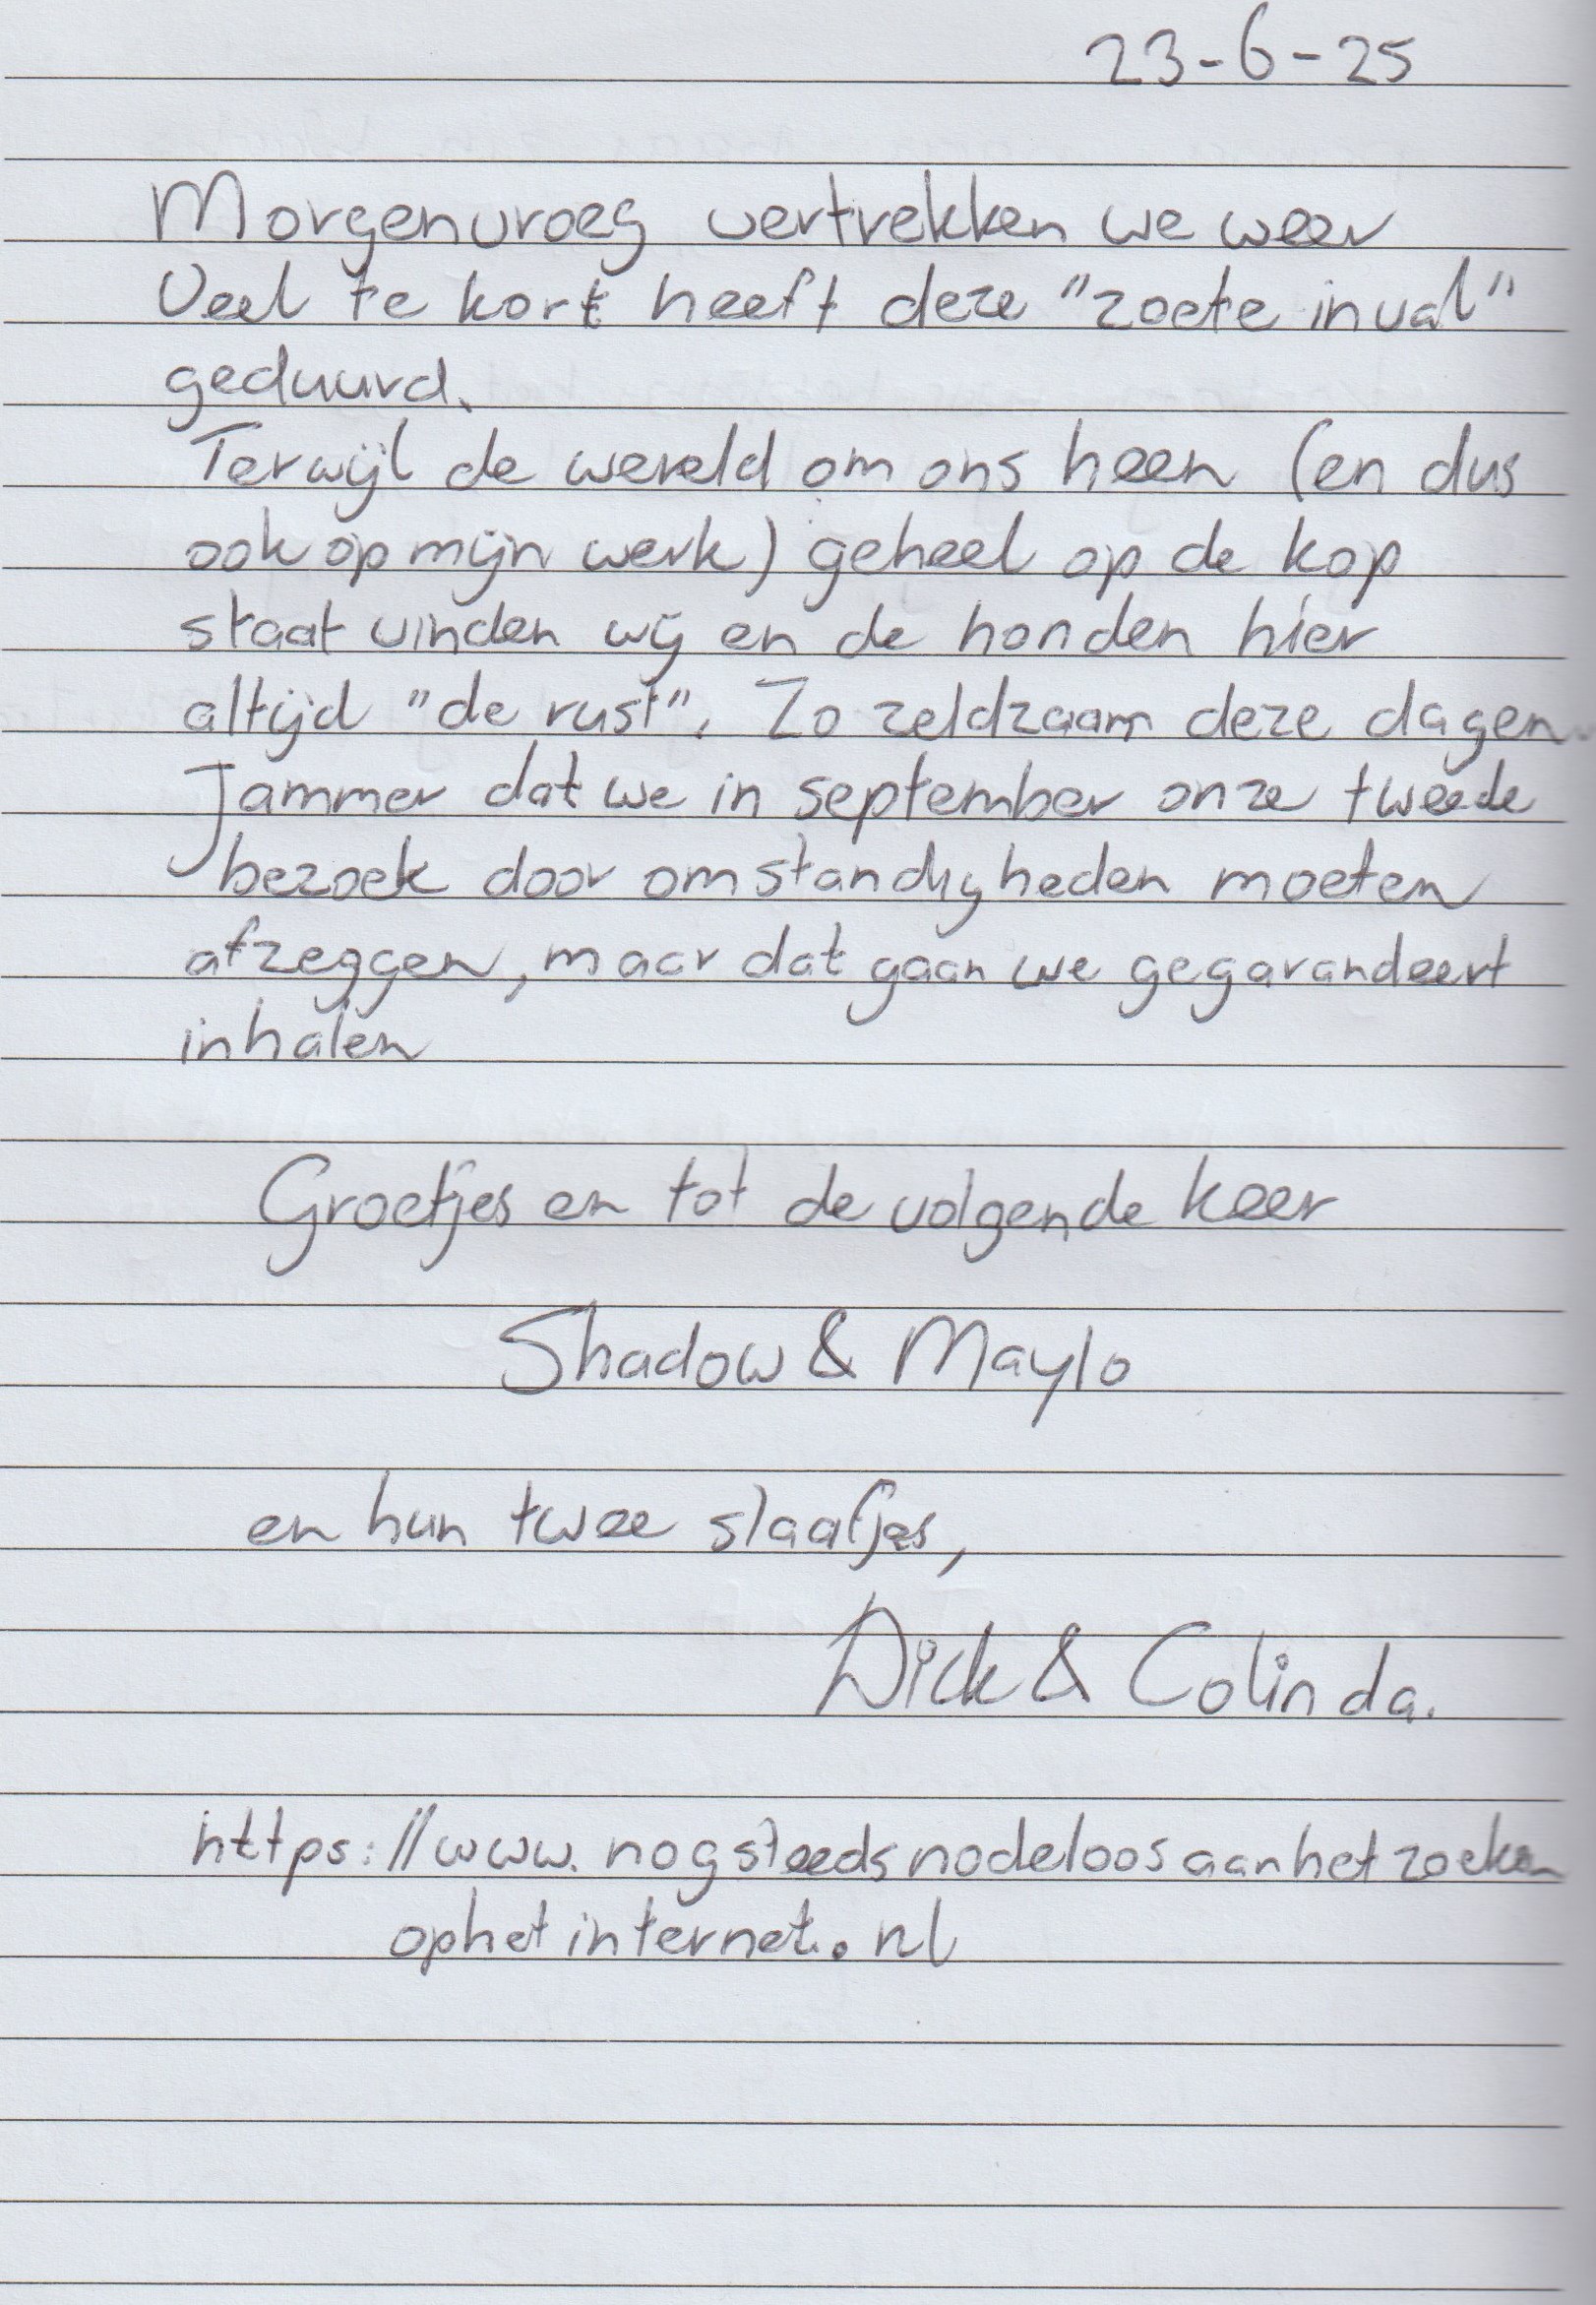 23-6-25
Morgenvroeg vertrekken we weer
Veel te kort heeft deze "zoete inval"
geduurd.
Terwijl de wereld om ons heen (en dus
ook op mijn werk) geheel op de kop
staat vinden wij en de honden hier
altijd "de rust". Zo zeldzaam deze dagen.
Jammer dat we in september onze tweede
bezoek door omstandigheden moeten
afzeggen, maar dat gaan we gegarandeert
inhalen
Groetjes en tot de volgende keer
Shadow & Maylo
en hun twee slaafjes,
Dick & Colinda.
https://www.nogsteedsnodeloosaanhetzoeken
ophetinternet.nl